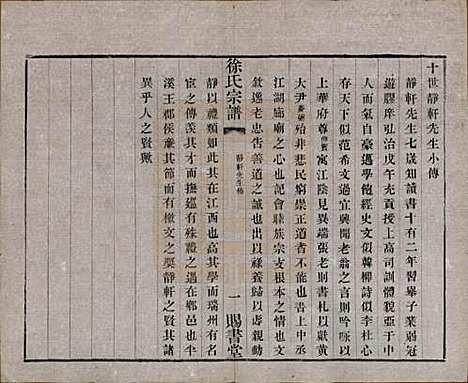 十世靜軒先生小傳
靜軒先生七歲知讀書十有二年習舉子業弱冠
遊膠庠弘治戊午充貢授上高司訓體貌亞于中
人而氣自豪邁學飽經史文似韓柳詩似李杜心
存天下似范希文過宜興聞老翁之言則吟咏以
上華府尊寓江陰見異端張老則書札以獻黃
大尹殆非悲民窮崇正道者不能也至書上中丞
江湖廊廟之心也記會聯族宗支根本之情也文
敘逸老忠告善道之誠也出以祿養歸以壽親動
靜以禮類如此其在江西也高其學而瑞州有名
宦之傳羨其行而巡道有殊禮之遇在鄉邑也少
溪王郡侯雋其節而有檄文之獎靜軒之賢其諸
異乎人之賢歟
徐氏宗譜
靜軒先生傳
一
賜書堂